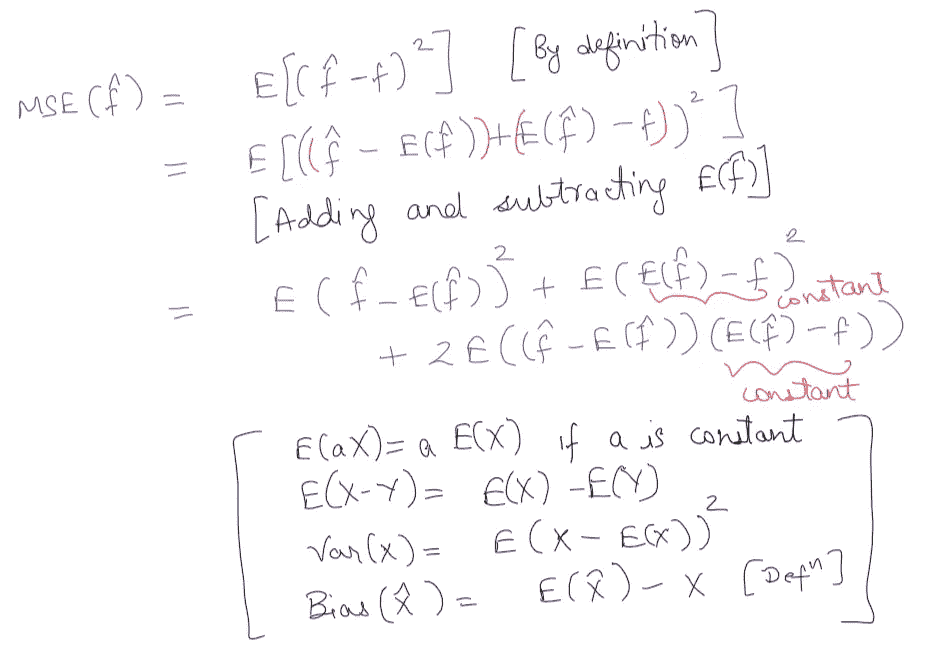 MSE(f̂) = E[(f̂ - f)²] [By definition]
= E[((f̂ - E(f̂))+(E(f̂) - f))²]
[Adding and subtracting E(f̂)]
= E(f̂ - E(f̂))² + E(E(f̂) - f)²
constant
+ 2E((f̂ - E(f̂))(E(f̂) - f))
constant
E(aX) = a E(X) if a is constant
E(X-Y) = E(X) - E(Y)
Var(x) = E(X - E(X))²
Bias(x̂) = E(x̂) - x [Defⁿ]